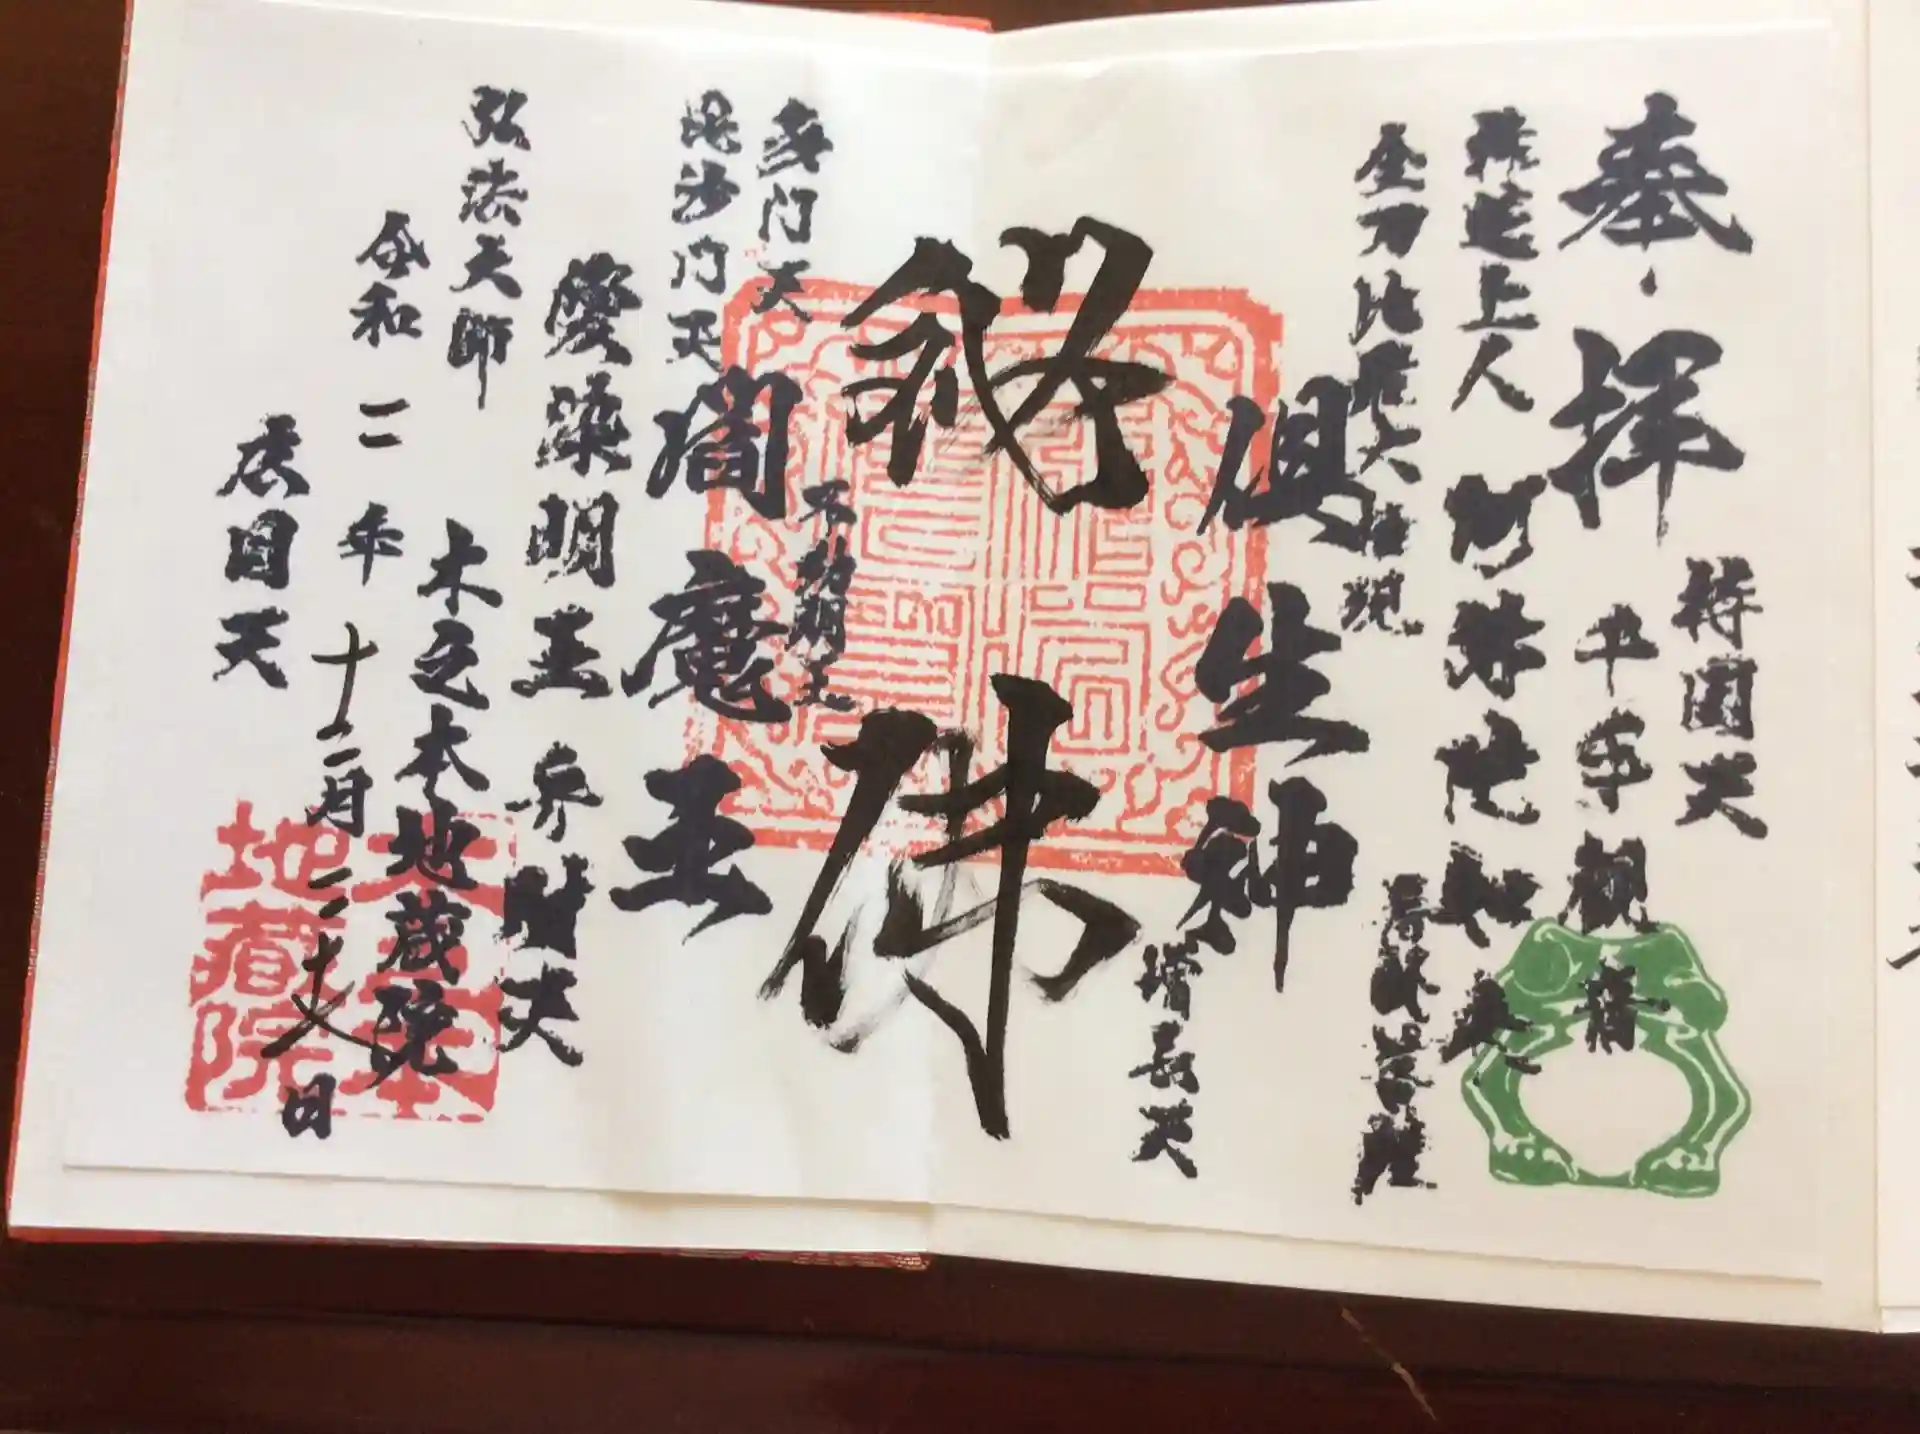 奉拝
持国天
千手観音
蓮上人
阿弥陀如来
金刀比羅大権現
菩薩
倶生神
増長天
秘佛
多門天
不動明王
毘沙門天
閻魔王
愛染明王
弁財天
弘法大師
木之本地蔵院
令和二年十二月二十九日
広目天
木之本
地蔵院